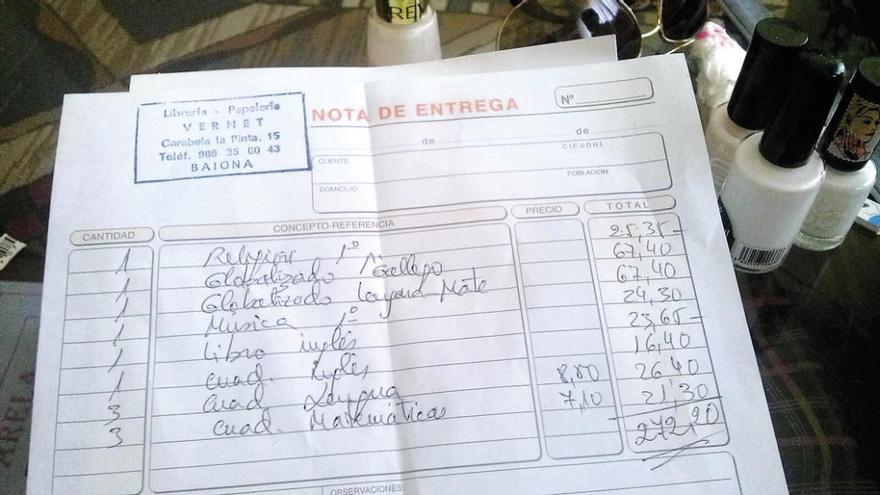 REV
Librería - Papelería
VERNET
Carabela la Pinta, 15
Teléf. 986 35 60 43
BAIONA
NOTA DE ENTREGA
Nº
de de
CLIENTE C.I.F. ó D.N.I.
DOMICILIO POBLACIÓN
CANTIDAD CONCEPTO-REFERENCIA PRECIO TOTAL
1 Religion 1º 25,35
1 Globalizado Gallego 67,40
1 Globalizado Lengua Mate 67,40
1 Musica 1º 24,30
1 Libro inglés 23,65
1 Cuad. Inglés 16,40
3 Cuad Lengua 8,80 26,40
3 Cuad. Matemáticas 7,10 21,30
272,20
OBSERVACIONES
ARELA